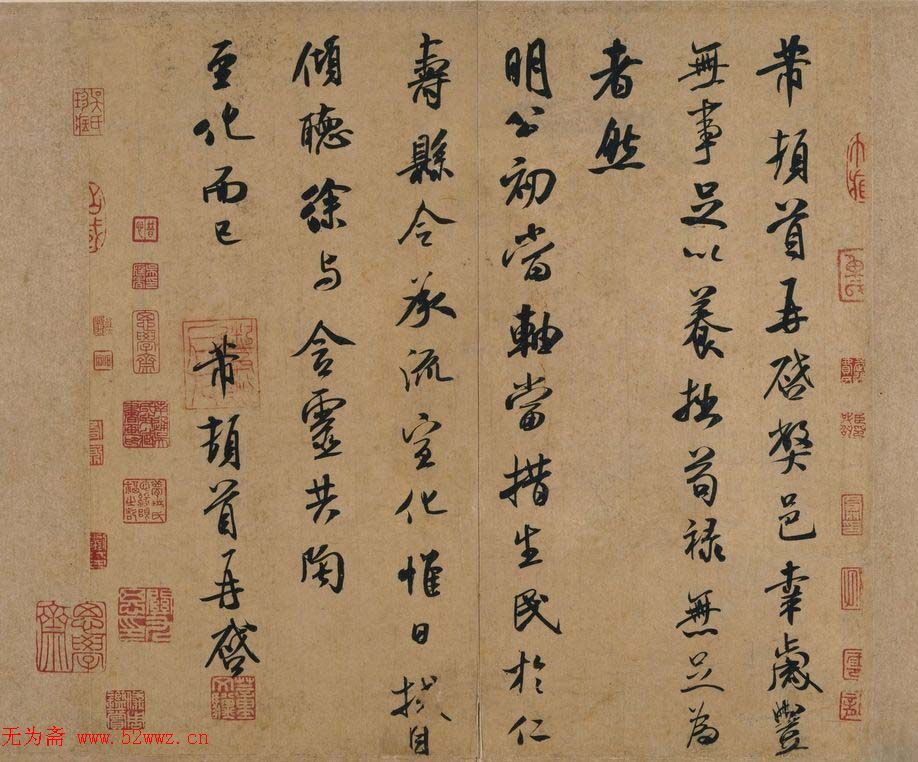 芾頓首再啓弊邑幸歲豐
無事足以養拙苟禄無足為
者然
明公初當軸當措生民於仁
壽縣令承流宣化惟日拭目
傾聴徐与含靈共陶
至化而已 芾頓首再啓
无为斋 www.52wwz.cn